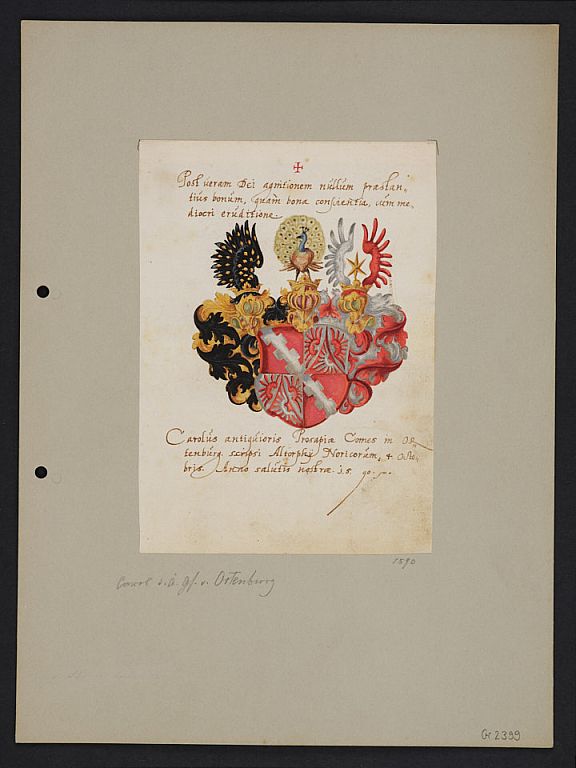 Post veram Dei agnitionem nullum præstan,
tius bonum, quàm bona conscientia, cum me,
diocri eruditione.
Carolus antiquioris Prosapiæ Comes in Or,
tenburg scripsi Altorphij Noricorum, 4. Octo,
bris. Anno salutis nostræ .1.5. 90.
1590
v. Ortenburg
Gr 2399